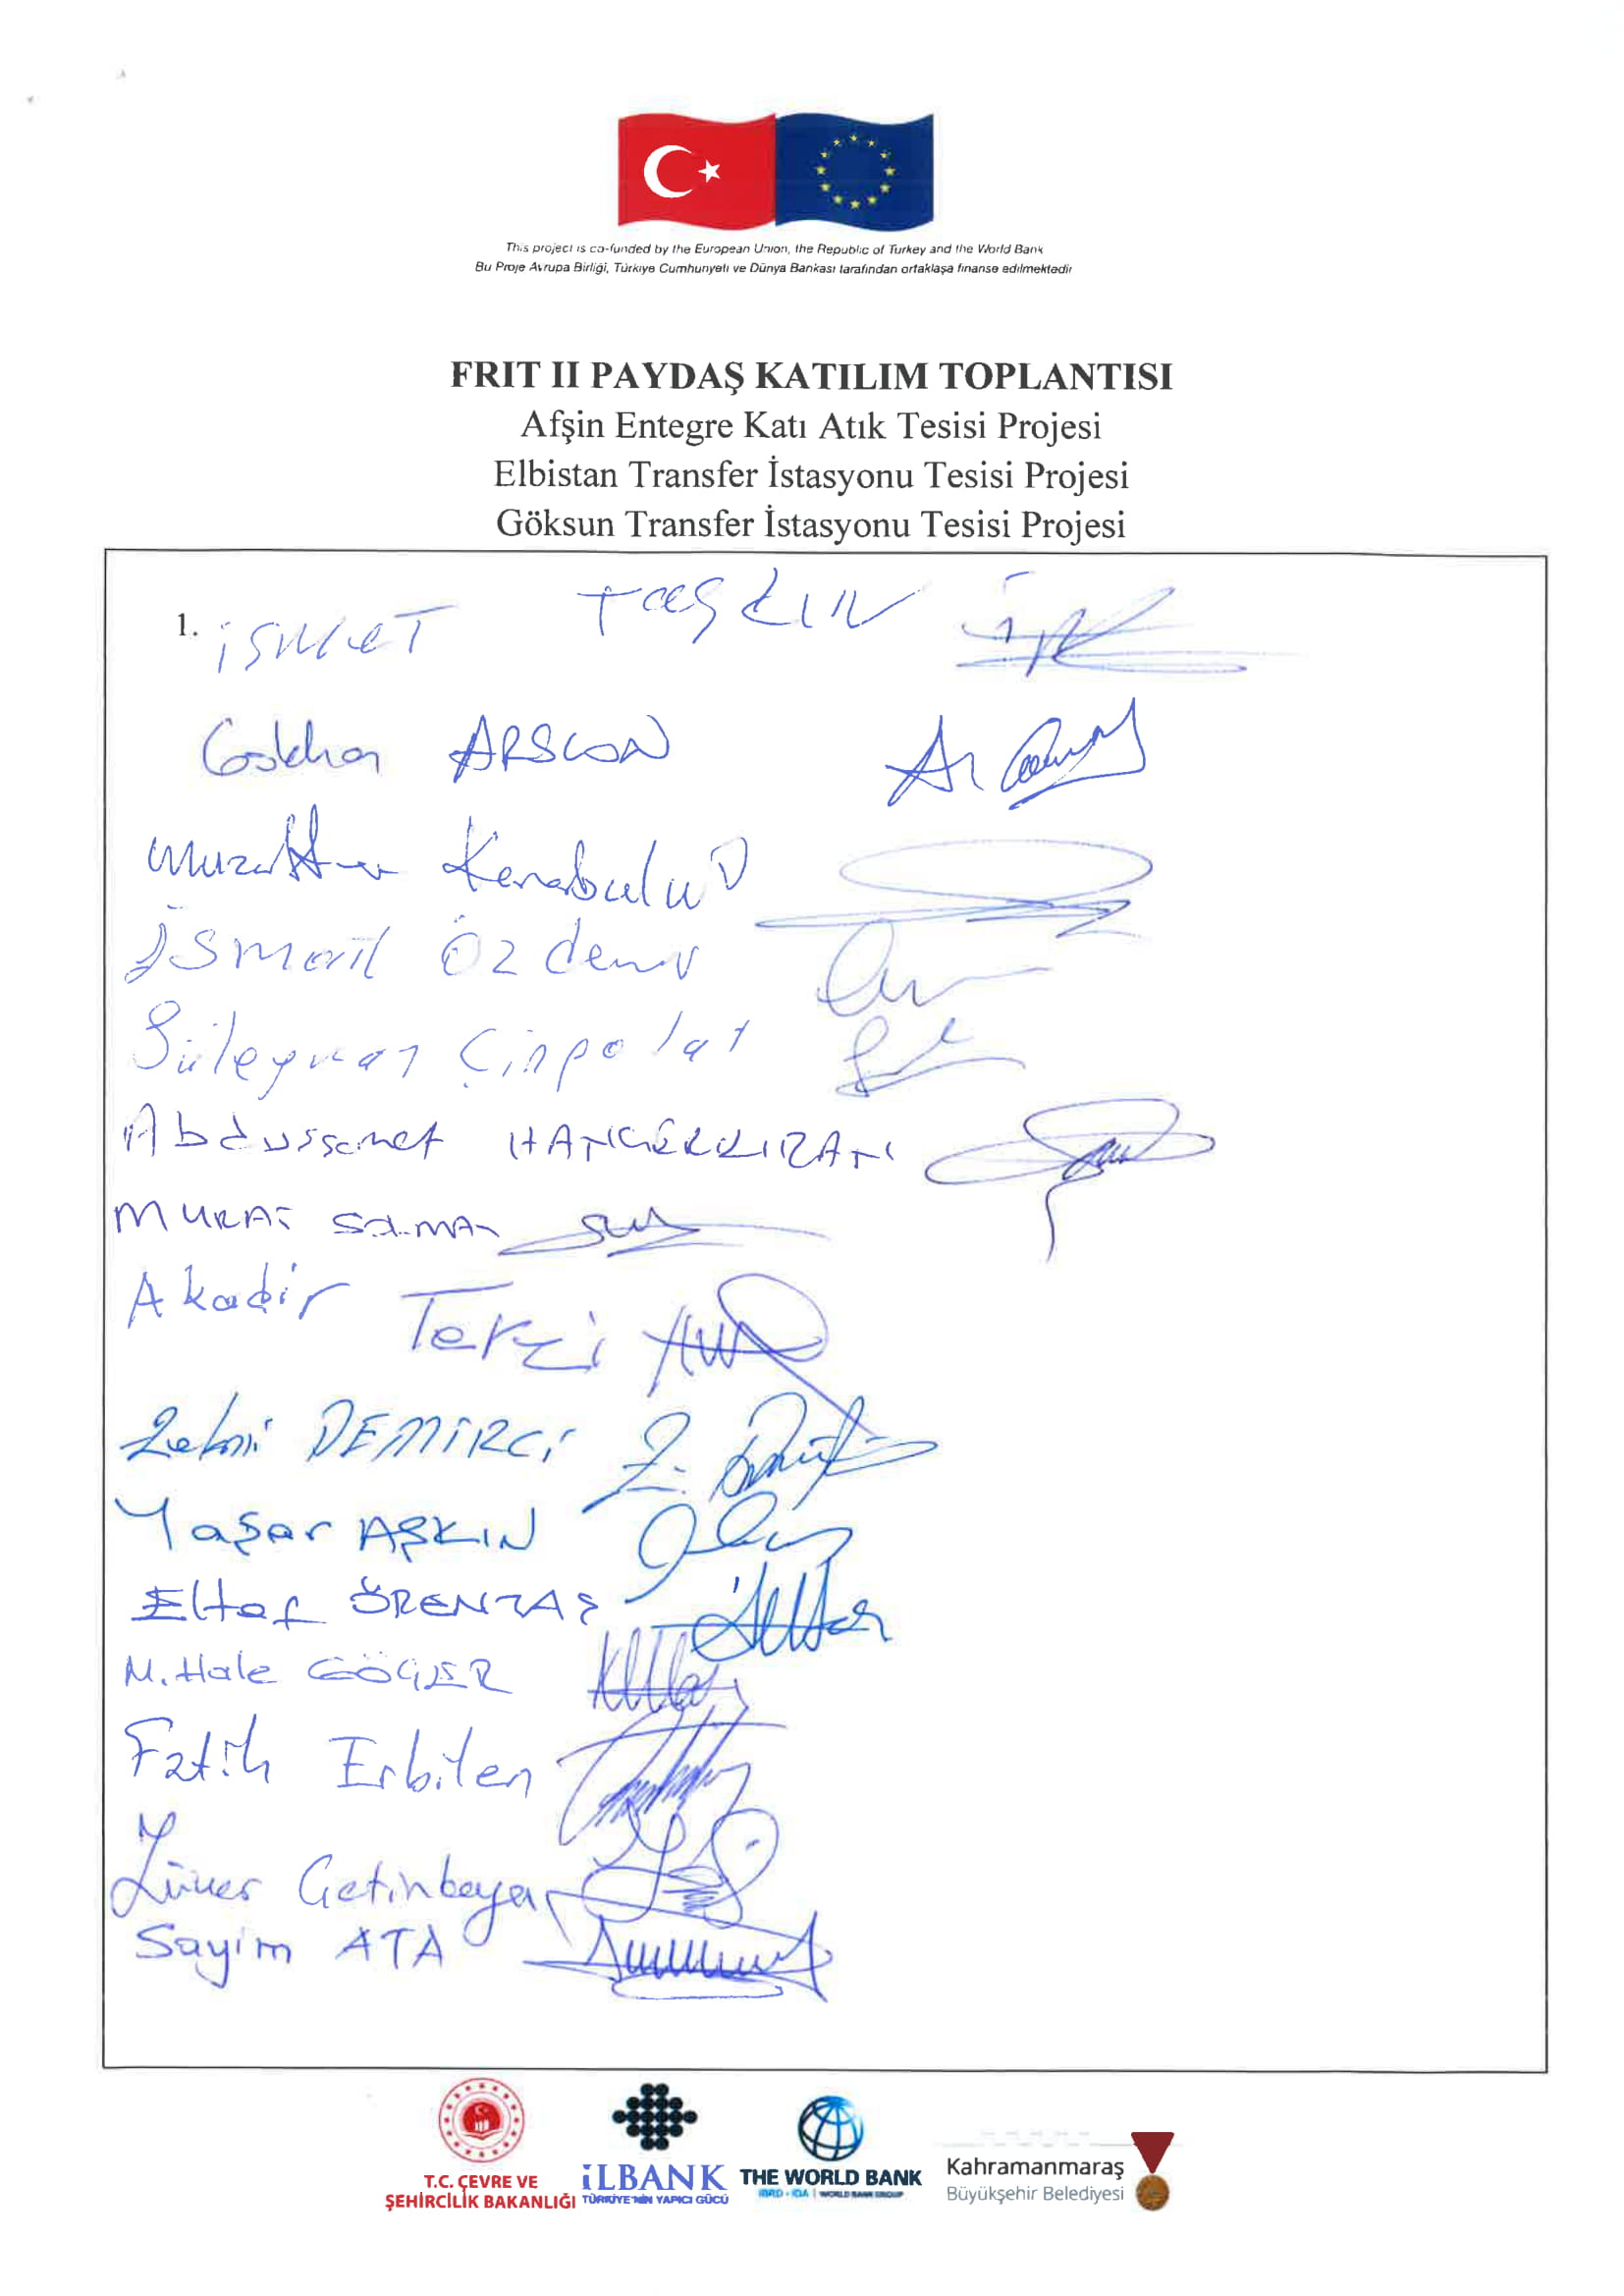 This project is co-funded by the European Union, the Republic of Turkey and the World Bank
Bu Proje Avrupa Birliği, Türkiye Cumhuriyeti ve Dünya Bankası tarafından ortaklaşa finanse edilmektedir
FRIT II PAYDAŞ KATILIM TOPLANTISI
Afşin Entegre Katı Atık Tesisi Projesi
Elbistan Transfer İstasyonu Tesisi Projesi
Göksun Transfer İstasyonu Tesisi Projesi
1. İSMET TAŞKIN
Gökhan ARSLAN
Muzaffer Karabulut
İsmail Özdemir
Süleyman Çinpolat
Abdussamet
MURAT
Akadir Terzi
Zekai DEMİRCİ
Yaşar AŞKIN
Eltaf ÖRENTAŞ
M. Hale GÖÇER
Fatih Erbilen
Çetinkaya
Sayim ATA
T.C. ÇEVRE VE
ŞEHİRCİLİK BAKANLIĞI
İLBANK
TÜRKİYE'NİN YAPICI GÜCÜ
THE WORLD BANK
IBRD • IDA | WORLD BANK GROUP
Kahramanmaraş
Büyükşehir Belediyesi